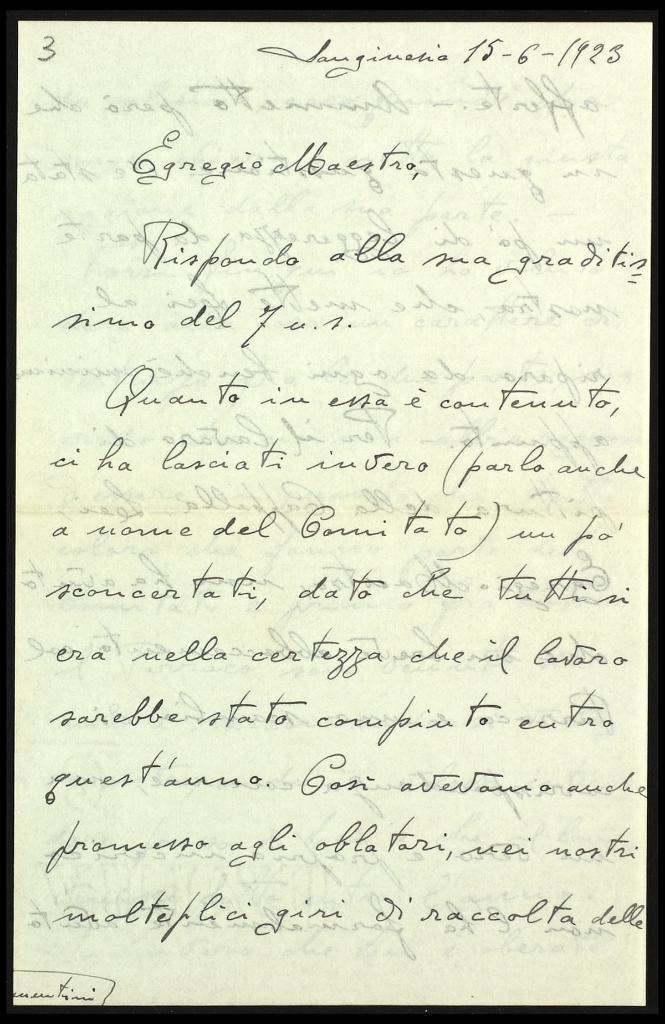 3
Sanginesio 15-6-1923
Egregio Maestro,
Rispondo alla sua graditis=
simo del 7 u.s.
Quanto in essa è contenuto,
ci ha lasciati invero (parlo anche
a nome del Comitato) un pó
sconcertati, dato che tutti si
era nella certezza che il lavoro
sarebbe stato compiuto entro
quest'anno. Così avevamo anche
promesso agli oblatori, nei nostri
molteplici giri di raccolta delle